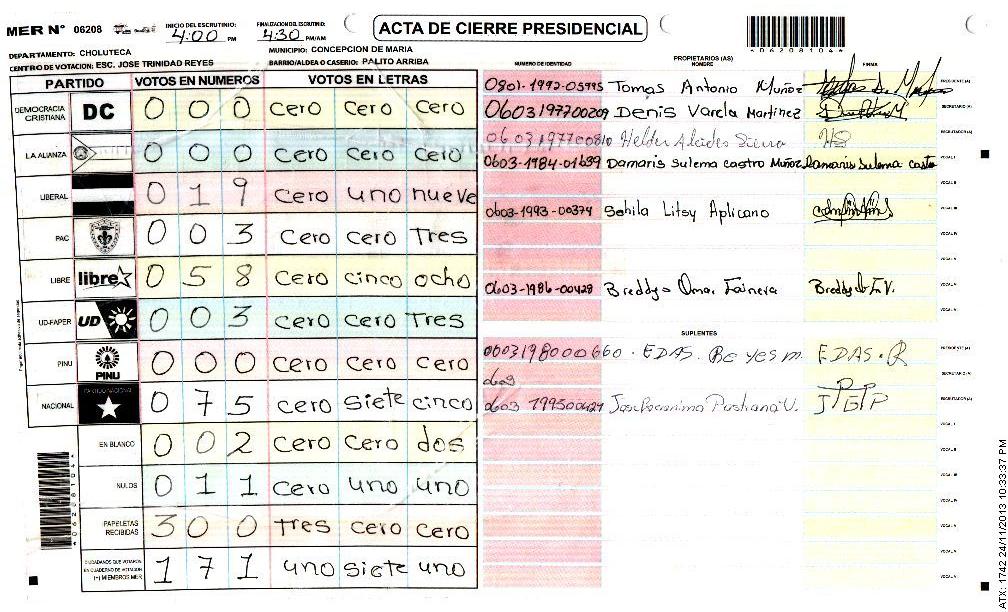 MER N° 06208
INICIO DEL ESCRUTINIO: 4:00 PM
FINALIZACION DEL ESCRUTINIO: 4:30 PM/AM
ACTA DE CIERRE PRESIDENCIAL
0620810 4
DEPARTAMENTO: CHOLUTECA
MUNICIPIO: CONCEPCION DE MARIA
CENTRO DE VOTACION: ESC. JOSE TRINIDAD REYES
BARRIO/ALDEA O CASERIO: PALITO ARRIBA
PARTIDO VOTOS EN NUMEROS VOTOS EN LETRAS
DEMOCRACIA CRISTIANA DC 0 0 0 cero cero cero
LA ALIANZA 0 0 0 cero cero cero
LIBERAL 0 1 9 cero uno nueve
PAC 0 0 3 cero cero Tres
LIBRE libre 0 5 8 cero cinco ocho
UD-FAPER UD 0 0 3 cero cero Tres
PINU PINU 0 0 0 cero cero cero
NACIONAL PARTIDO NACIONAL 0 7 5 cero siete cinco
EN BLANCO 0 0 2 cero cero dos
NULOS 0 1 1 cero uno uno
PAPELETAS RECIBIDAS 3 0 0 tres cero cero
CIUDADANOS QUE VOTARON EN CUADERNO DE VOTACION (+) MIEMBROS MER 1 7 1 uno siete uno
PROPIETARIOS (AS)
NUMERO DE IDENTIDAD NOMBRE FIRMA
0801-1992-05995 Tomas Antonio Muñoz PRESIDENTE (A)
0603197700209 Denis Varela Martinez SECRETARIO (A)
0603197700810 Helder Alcides ESCRUTADOR (A)
0603-1984-01639 Damaris Sulema castro Muñoz Damaris Sulema casto VOCAL I
VOCAL II
0603-1993-00374 Sohila Litsy Aplicano VOCAL III
VOCAL IV
VOCAL V
0603-1986-00428 Breddy Omar
VOCAL V
SUPLENTES
0603198000660. EDAS. Reyes m. EDAS.R PRESIDENTE (A)
SECRETARIO (A)
0603 199500424 Jose Geronimo V. JPGP ESCRUTADOR (A)
VOCAL I
VOCAL II
VOCAL III
VOCAL IV
VOCAL V
VOCAL V
VOCAL V
ATX: 1742 24/11/2013 10:33:37 PM